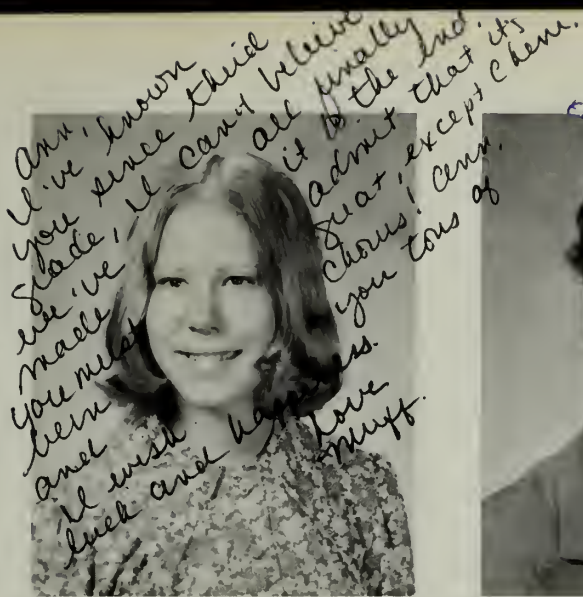 Ann,
I've known
you since third
grade, I can't believe
we've all finally
made it to the end.
You must admit that its
been great, except Chem.
and chorus! Ann,
I wish you tons of
luck and happiness.
Love
Muff.